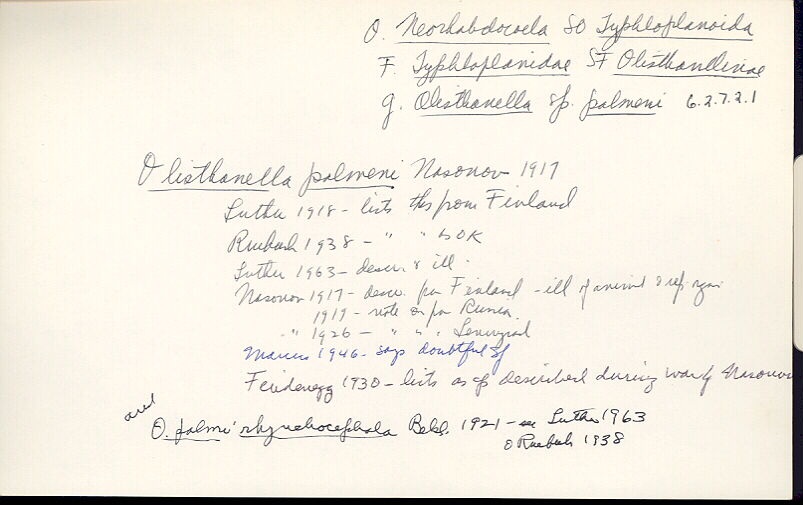 O. Neorhabdocoela SO Typhloplanoida
F. Typhloplanidae SF Olisthanellinae
g. Olisthanella sp. palmeni 6.2.7.2.1
Olisthanella palmeni Nasonov 1917
Luther 1918 - lists this from Finland
Ruebush 1938 - " " as OK
Luther 1963 - descr. & ill.
Nasonov 1917 - descr. from Finland - ill of animal & rep. organ
1919 - note on from Russia.
" 1926 - " " " Leningrad
Marcus 1946 - says doubtful sp
Findenegg 1930 - lists as sp described during war of Nasonov
and
O. palmeni rhynchocephala Bekl. 1921 - see Luther 1963
& Ruebush 1938